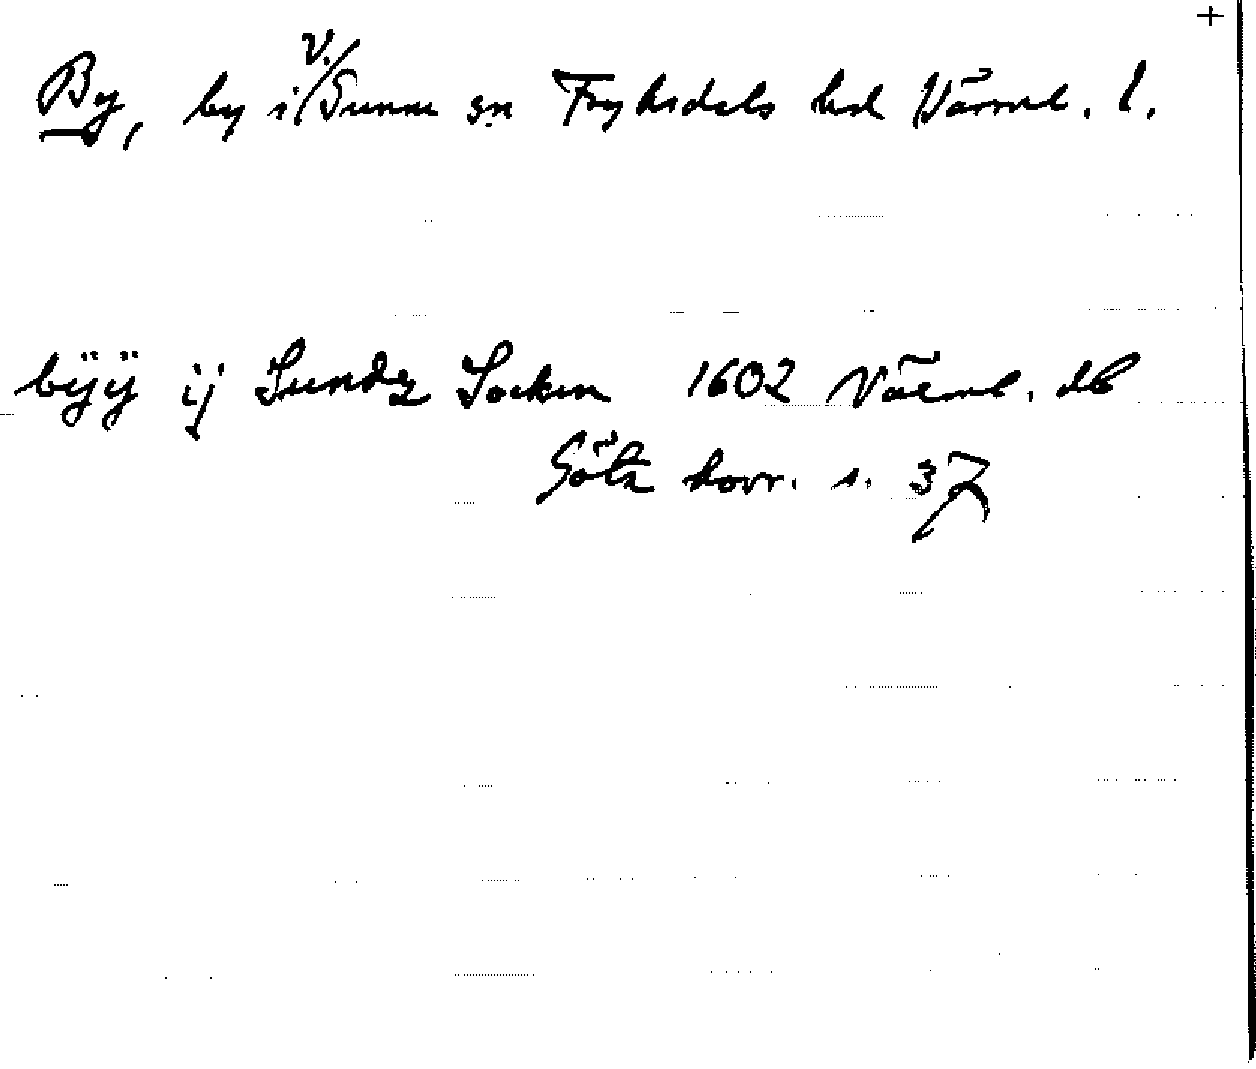 +
By, by i V. Sunne sn Fryksdals hd Värml. l.
bÿÿ ij Sundz Sockn 1602 Värml. db
Götz hovr. s. 37